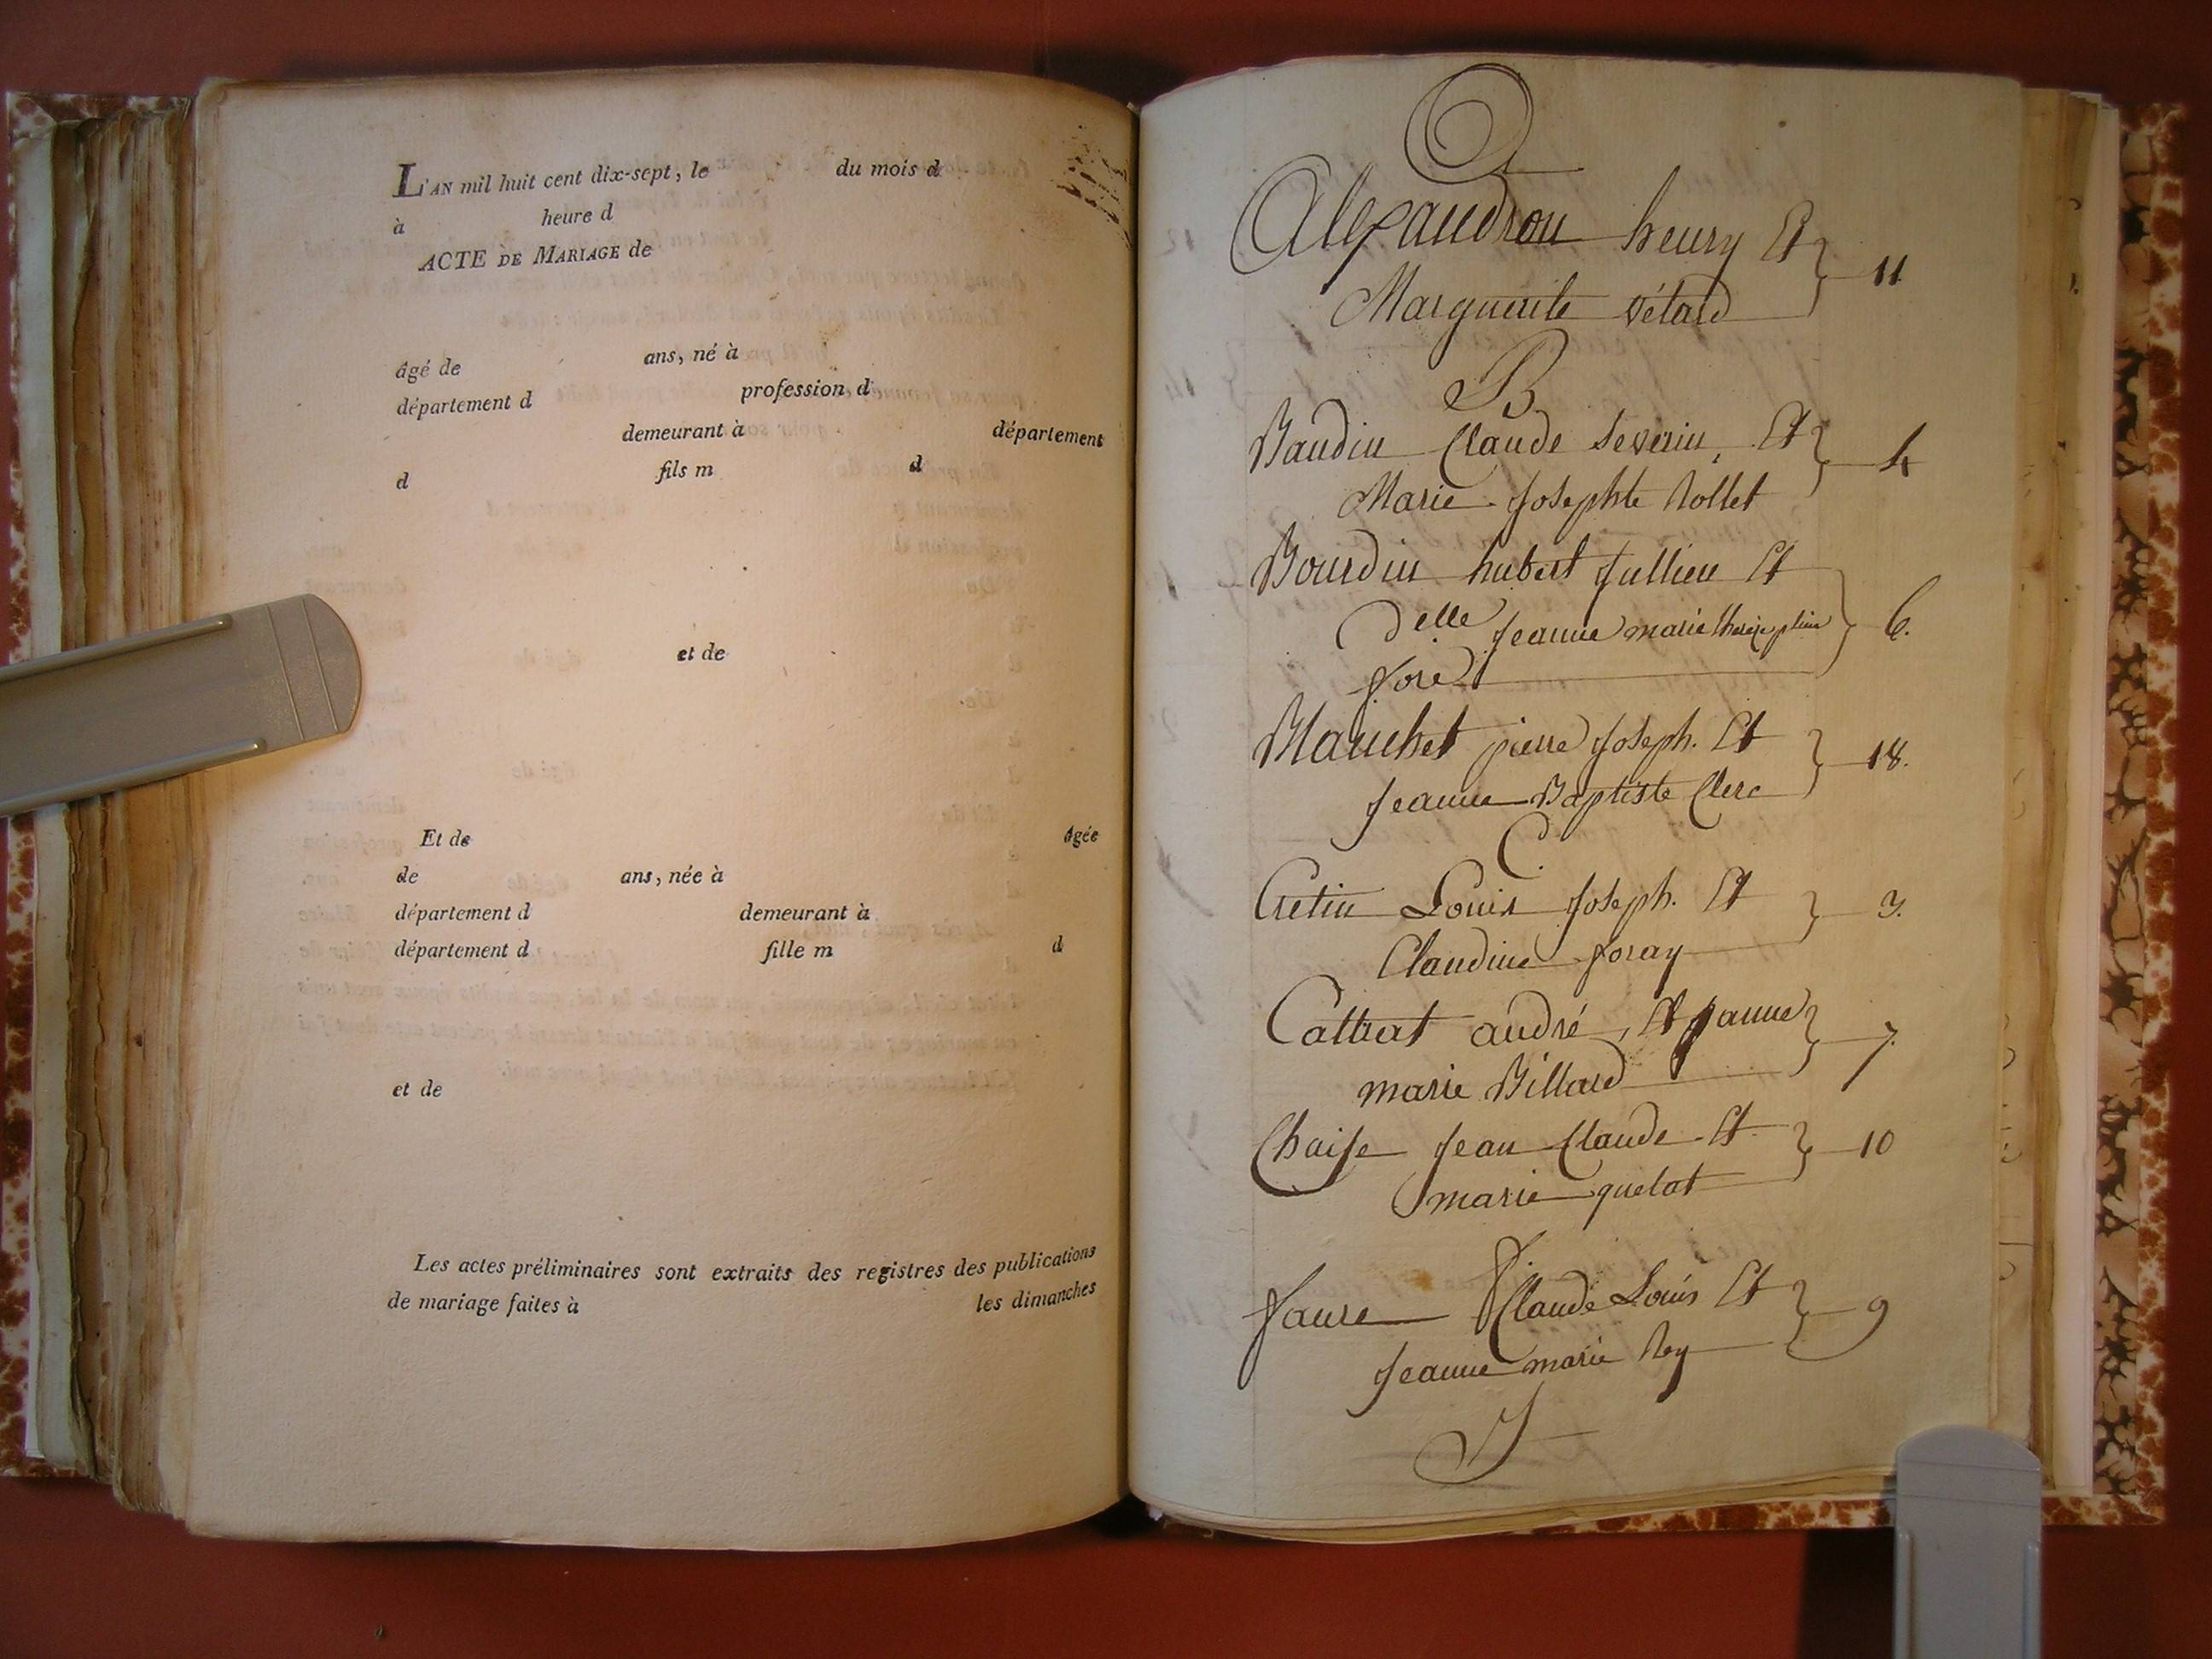 L'AN mil huit cent dix-sept, le du mois d
à heure d
ACTE DE MARIAGE de
âgé de ans, né à
département d profession d
demeurant à département
d fils m d
et de
Et de âgée
de ans, née à
département d demeurant à
département d fille m d
et de
Les actes préliminaires sont extraits des registres des publications
de mariage faites à les dimanches
A
Alexandron henry Et
Marguerite vétard 11
B
Baudin Claude Severin, Et 4
Marie Josephte Rollet
Bourdin hubert Jullien Et
Delle Jeanne marie 6.
foré
Blanchet pierre Joseph. Et 18.
Jeanne Baptiste Clerc
C.
Cretin Louis Joseph. Et 3.
Claudine foray
Cattat andré, Et Jeanne 7.
marie Billard
Chaise Jean Claude Et 10
marie quelat
F
faure Claude Louis Et 9
Jeanne marie Rey
J